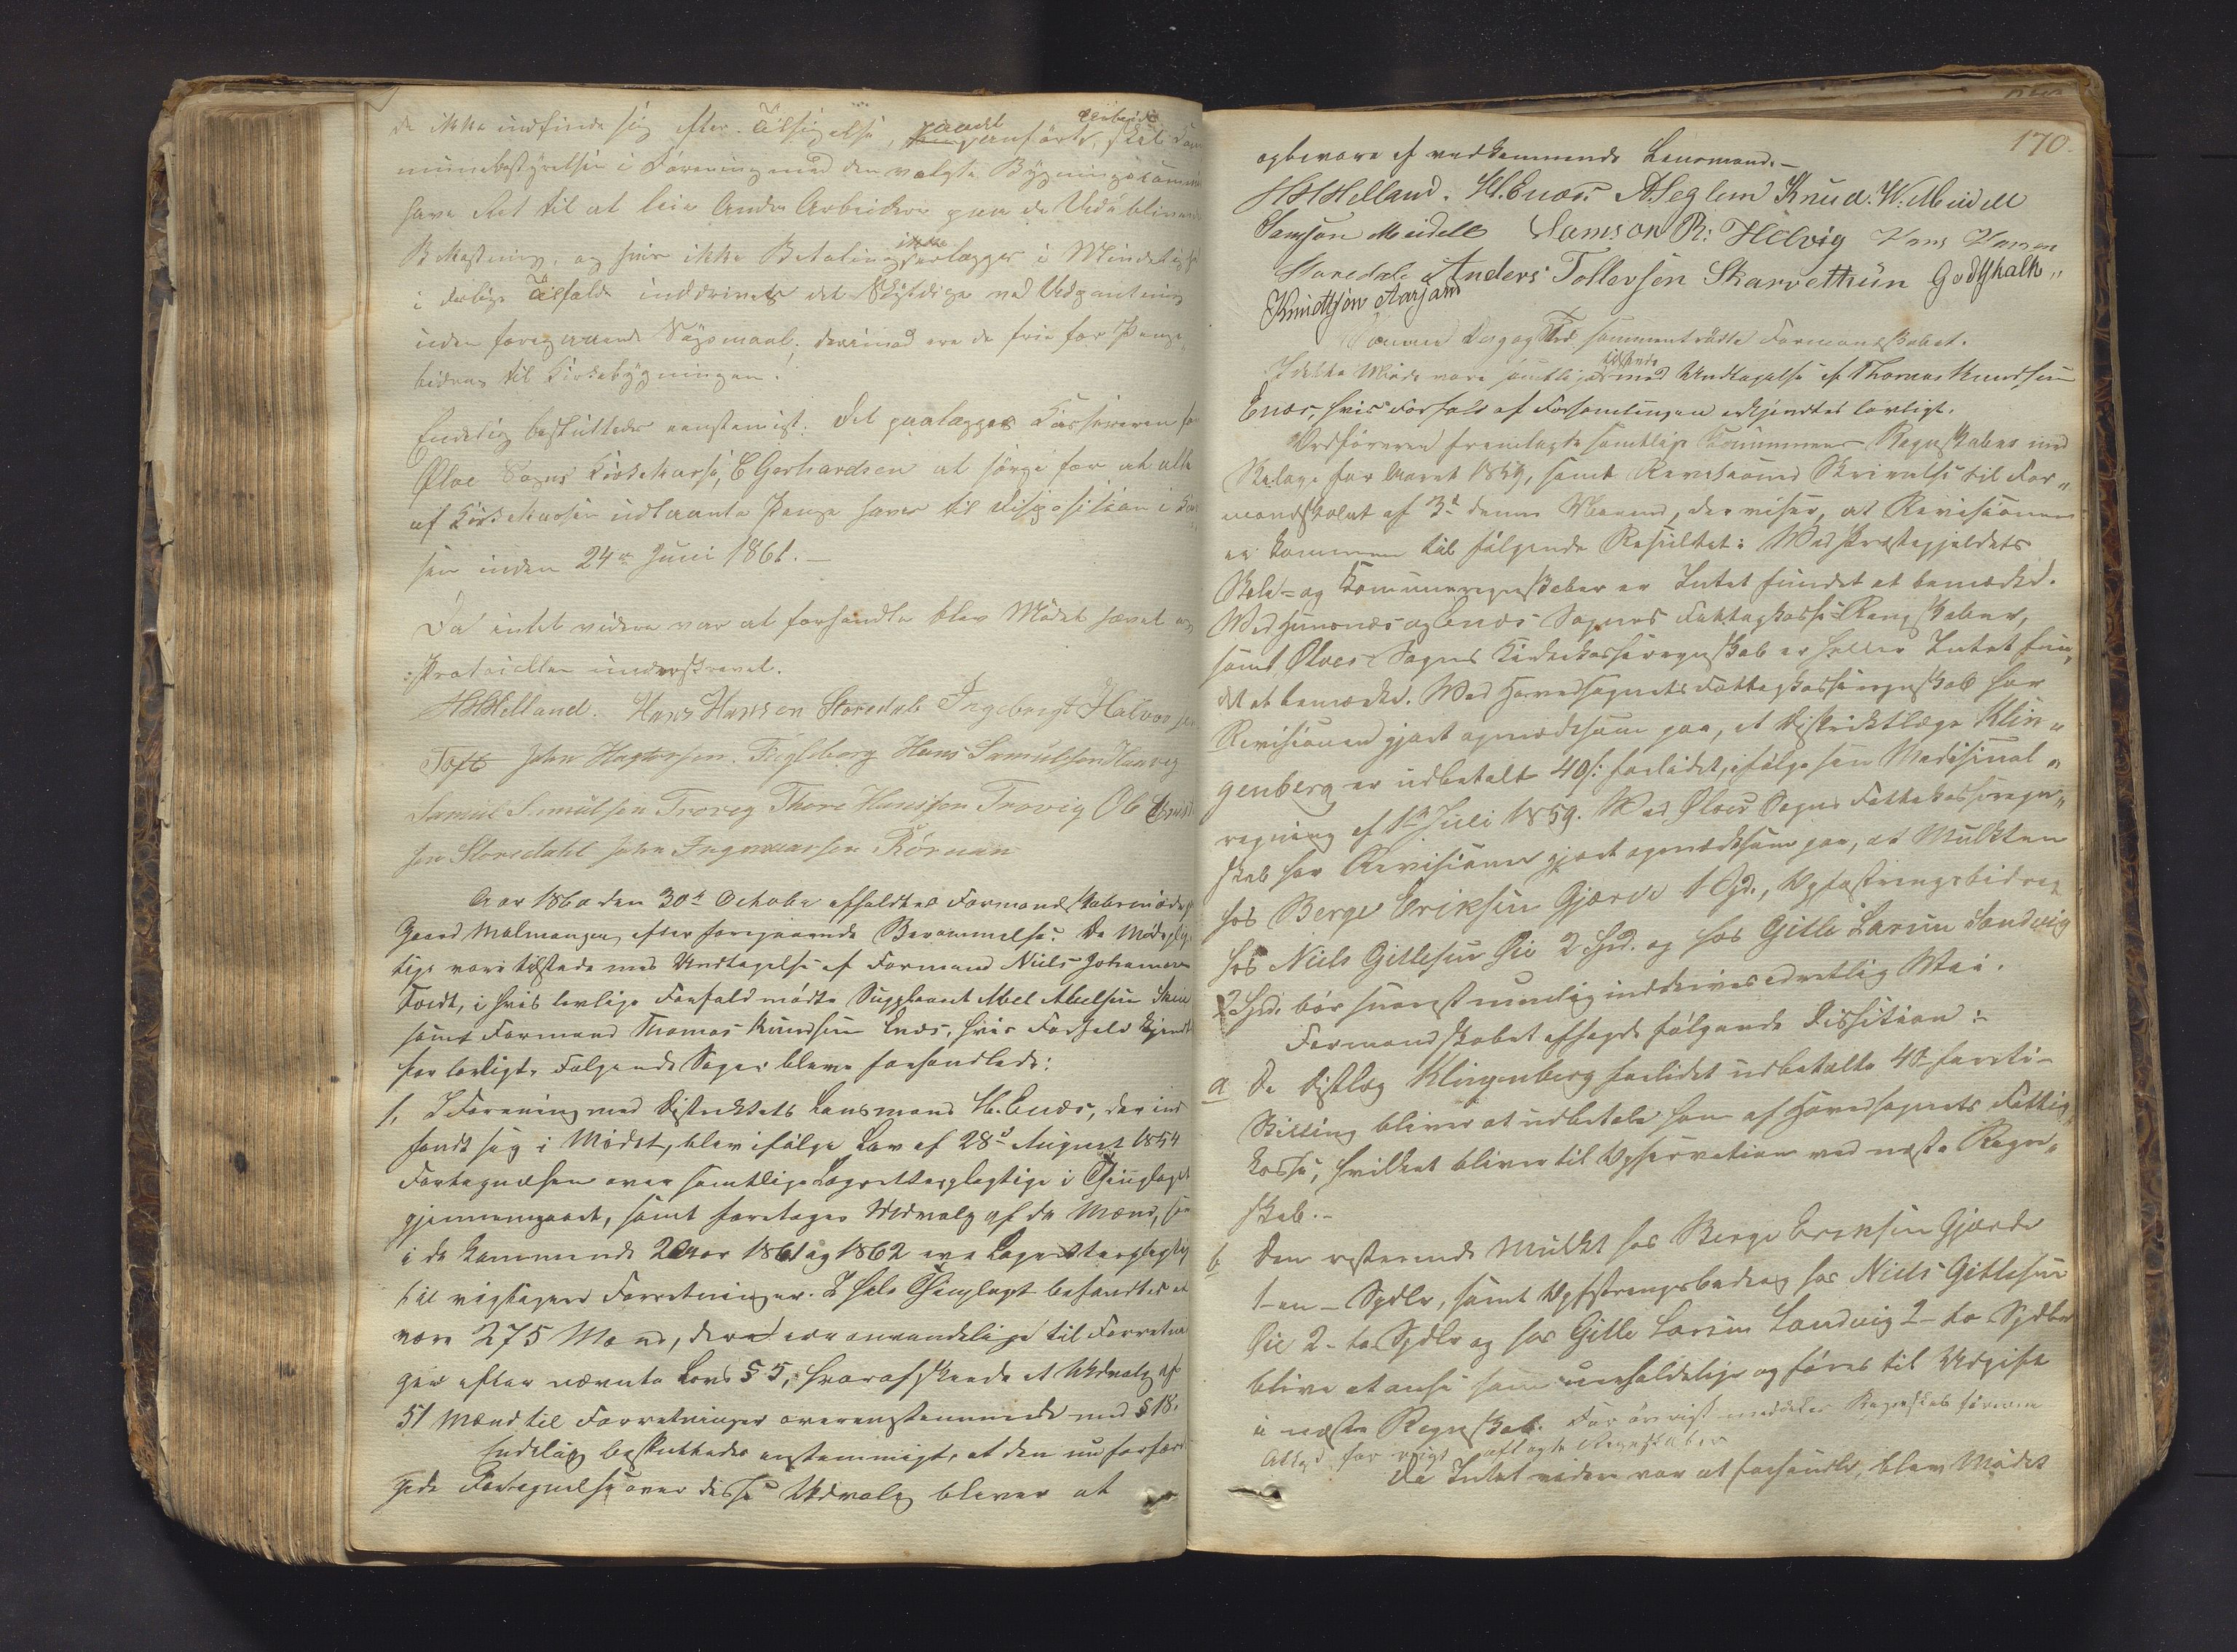 de ikke indfinde sig efter Tilsigelse, paa anførte, skal Kom
munebestyrelsen i Forening med den valgte Bygningscommission
have Ret til at leie Andre Arbeidere paa de Udeblivendes
Bekostning, og hvis ikke Betaling erlægges i Mindelighed
i deslige Tilfælde inddrives det Skyldige ved Udpantning
uden foregaaende Søgsmaal; derimod ere de frie for Penge
bidrag til Kirkebygningen.
Endelig besluttedes eenstemigt: Det paalægges Kassereren for
Ølve Sogns Kirkekasse, C Gerhardsen at sørge for at alle
af Kirkekassen udlaante Penge haves til Disposition i Kas
sen inden 24de Juni 1861.
Da intet videre var at forhandle blev Mødet hævet og
Protocollen underskrevet.
HHHelland. Hans Hansen Storedale Ingebrigt Halvorsen
Toft John Hagtorsen Fugleberg Hans Samulsen Hanveg
Samul Samulsen Troveg Thore Hansen Trovig Ole Knud
sen Storedahl John Ingmarsen Rørnan
Aar 1860 den 30te October afholdtes Formandskabsmøde paa
Gaard Malmangen efter foregaaende Berammelse. De Mødeplig
tige vare tilstede med Undtagelse af Formand Niels Johannesen
Toedt, i hvis lovlige Forfald mødte Suppleant Abel Abelsen
samt Formand Thomas Knudsen Enæs, hvis Forfald kjendtes
for lovligt. Følgende Sager bleve forhandlede:
1, I Forening med Distriktets Lensmand H. Enæs, der ind
fandt sig i Mødet, blev ifølge Lov af 28de August 1854
Fortegnelsen over samtlige Lagrettespligtige i Thinglaget
gjennemgaaet, samt foretages Udvalg af de Mænd, som
i de kommende 2 Aar 1861 og 1862 ere Lagrettespligtige
til vigtigere Forretninger. I hele Thinglaget befandtes at
være 275 Mænd, der ere anvendelige til Forretnin
ger efter nævnte Lovs § 5, hvoraf skeede et Udvalg af
51 Mænd til Forretninger overensstemmende med § 18.
Endelig besluttedes enstemmigt, at den nu forfær
gede Fortegnelse over disse Udvalg bliver at
170.
opbevare af vedkommende Lensmand.
HHHelland. H. Enæs. A. Seglem Knud. W. Meidell
Samson Meidell Samson R: Helvig Hans Hansen
Storedale Anders Tollevsen Skarvethun Godtskalk
Knudtsøn Aarjam
Samme Dag og Sted sammentraadte Formandskabet.
I dette Møde vare samtlige tilstede med Undtagelse af Thomas Knudsen
Enæs, hvis Forfald af Forsamlingen erkjendtes lovligt.
Ordføreren fremlagde samtlige Kommunens Regnskaber med
Bilage for Aaret 1859, samt Revisionens Skrivelse til For
mandskabet af 3d denne Maaned, der viser, at Revisionen
er kommen til følgende Resultat: Ved Præstegjeldets
Skole- og Kommuneregnskaber er Intet fundet at bemærke.
Ved Huusnæs og Enæs Sognes Fattigkasse Regnskaber,
samt Ølves Sogns Kirkekasseregnskab er heller Intet fun
det at bemærke. Ved Hovedsognets Fattigkasseregnskab har
Revisionen gjort opmærksom paa, at Distriktslæge Klin
genberg er udbetalt 40 s: forlidet, ifølge hans Medicinal
regning af 1ste Juli 1859. Ved Ølves Sogns Fattigkasseregn
skab har Revisionen gjort opmærksom paa, at Mulkten
hos Berge Eriksen Gjærde 1 Spd., Opfostringsbidrag
hos Niels Gitlesen Øie 2 Spd. og hos Gitle Larsen Sandvig
2 Spd. bør snarest muelig inddrives ad retlig Vei.
Formandskabet afsagde følgende Decision:
a De Distlæg Klingenberg forlidet udbetalte 40 fireti-
Skilling bliver at udbetale ham af Hovedsognets Fattig
kasse, hvilket bliver til Observation ved næste Regn
skab.
b Den resterende Mulkt hos Berge Eriksen Gjærde
1-en- Spdlr, samt Opfostringsbidrag hos Niels Gitlesen
Øie 2-to Spdlr og hos Gitle Larsen Sandvig 2-to Spdlr
blive at ansee som uerholdelige og føres til Udgift
i næste Regnskab. For øvrigt meddeles Regnskabsførerne
Attest for rigtigt aflagte Regnskaber
Da Intet videre var at forhandle, blev Mødet